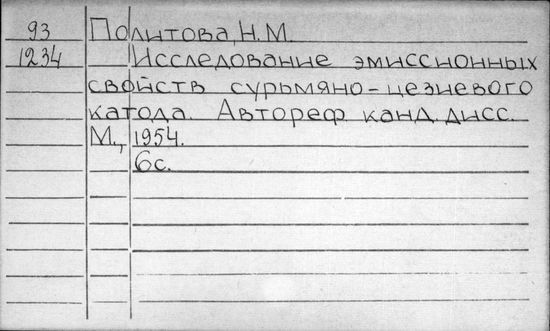 93 Политова, Н.М.
1234 Исследование эмиссионных
свойств сурьмяно-цезиевого
катода. Автореф канд. дисс.
М., 1954.
6с.